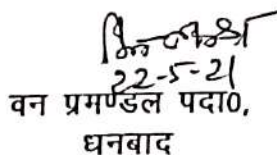 22-5-21
वन प्रमण्डल पदा0,
धनबाद